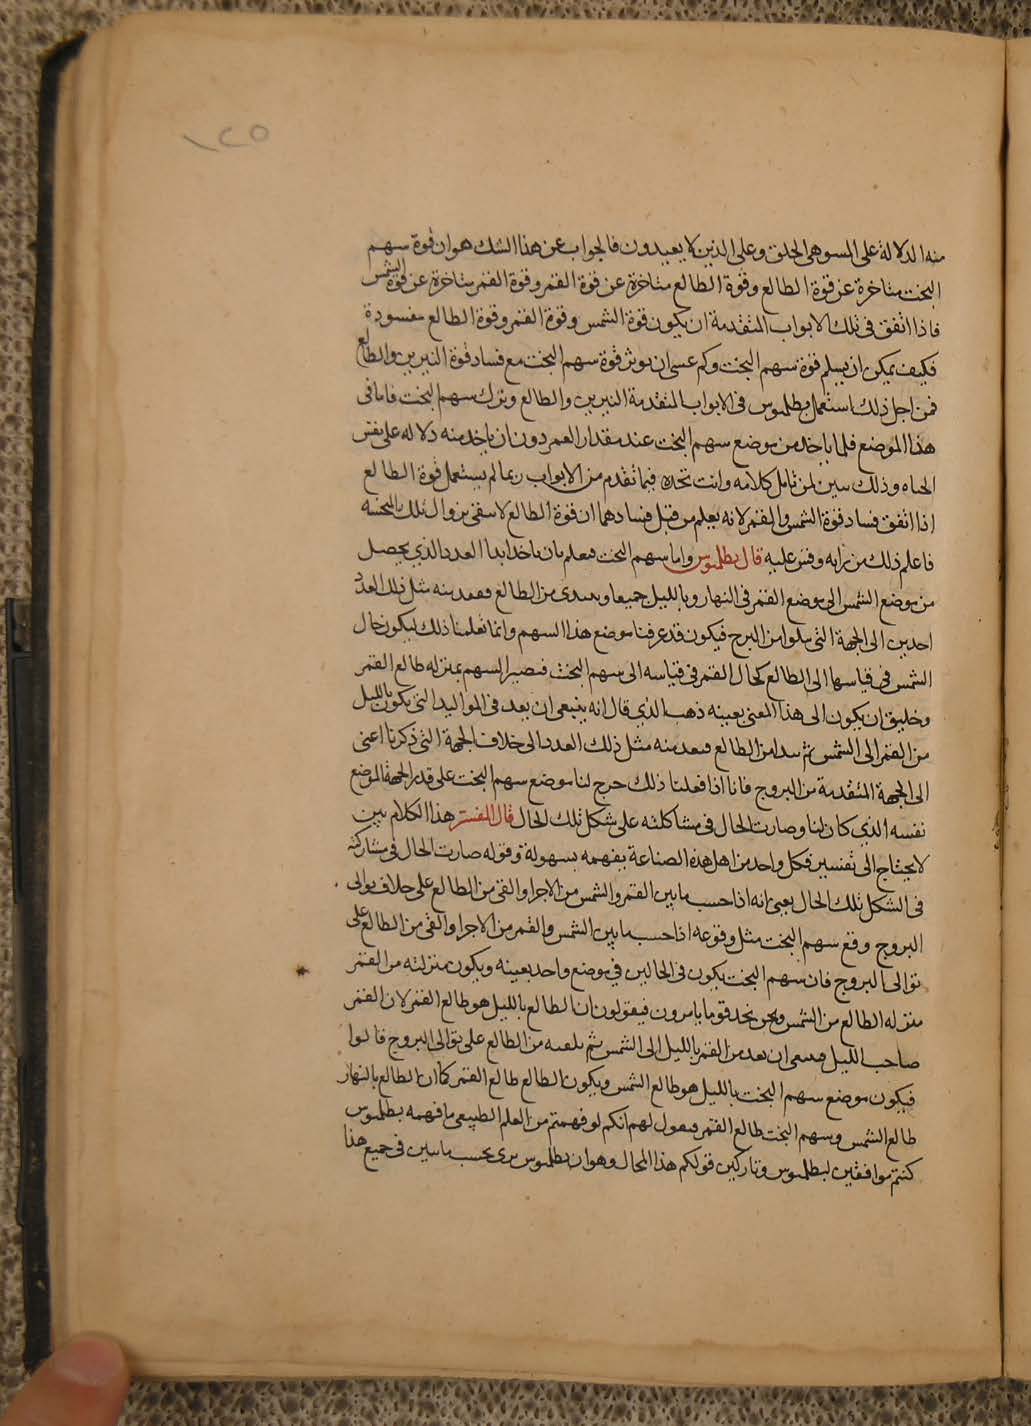 ١٢٥
منه الدلالة على السوهى الخلق وعلى الذين لا يعيدون فالجواب عن هذا الشك هو ان قوة سهم
البخت متاخرة عن قوة الطالع وقوة الطالع متاخرة عن قوة القمر وقوة القمر متاخرة عن قوة الشمس
فاذا اتفق فى تلك الابواب المتقدمة ان يكون قوة الشمس وقوة القمر وقوة الطالع مفسودة
فكيف يمكن ان يسلم قوة سهم البخت وكم عسى ان يوثر قوة سهم البخت مع فساد قوة النيرين والطالع
فمن اجل ذلك استعمل بطلميوس فى الابواب المتقدمة النيرين والطالع وترك سهم البخت فاما فى
هذا الموضع فلما ياخذ من موضع سهم البخت عند مقدار العمر دون ان ياخذ منه دلاله على نفس
الحياه وذلك بين لمن تامل كلامه وانت تجده فيما تقدم من الابواب ربما لم يستعمل قوة الطالع
اذا اتفق فساد قوة الشمس والقمر لانه يعلم من قبل فسادهما ان قوة الطالع لا سقى تلك
فاعلم ذلك من رايه وقس عليه قال بطلميوس واما سهم البخت فيعلم بان ياخذ ابدا العدد الذي يحصل
من موضع الشمس الى موضع القمر فى النهار وبالليل جميعا ويبتدى من الطالع فيعد منه مثل ذلك العدد
اخذين الى الجهة التى يتلوا من البرج فيكون قد عرفنا موضع هذا السهم وانما نعلمنا ذلك ليكون حال
الشمس فى قياسها الى الطالع كحال القمر فى قياسه الى سهم البخت فيصير السهم بمنزله طالع القمر
وخليق ان يكون الى هذا المعنى بعينه ذهب الذي قال انه ينبغى ان يعد فى المواليد التى يكون بالليل
من القمر الى الشمس ثم يبدا من الطالع فيعد منه مثل ذلك العدد الى خلاف الجهة التى ذكرنا اعنى
الى الجهة المتقدمة من البروج فانا اذا فعلنا ذلك خرج لنا موضع سهم البخت على قدر الجهة الموضع
نفسه الذي كان لنا وصارت الحال فى مشاكلته على شكل تلك الحال قال المفسر هذا الكلام بين
لا يحتاج الى تفسير فكل واحد من اهل هذه الصناعة يفهمه بسهولة وقوله صارت الحال فى مشاركته
فى الشكل تلك الحال يعنى انه اذا حسب ما بين القمر والشمس من الاجزا والقى من الطالع على خلاف توالى
البروج وقع سهم البخت مثل وقوعه اذا حسب ما بين الشمس والقمر من الاجزا والقى من الطالع على
توالى البروج فان سهم البخت يكون فى الحالين فى موضع واحد بعينه ويكون منزلته من القمر
منزله الطالع من الشمس ونحن نجد قوما يامرون فيقولون ان الطالع بالليل هو طالع القمر لان القمر
صاحب الليل فينبغى ان يعد من القمر بالليل الى الشمس ثم يلقيه من الطالع على توالى البروج قالوا
فيكون موضع سهم البخت بالليل هو طالع الشمس ويكون الطالع طالع القمر كما ان الطالع بالنهار
طالع الشمس وسهم البخت طالع القمر فيقول لهم انكم لو فهمتم من العلم الطبيعى ما فهمه بطلميوس
كنتم موافقين لبطلميوس وتاركين قولكم هذا المحال وهو ان بطلميوس يرى بحسب ما يبين فى جميع هذا